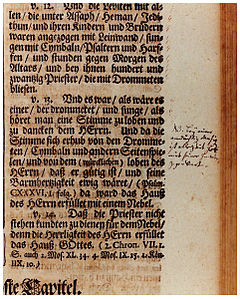 v. 12. Und die Leviten mit al-
len/ die unter Assaph/ Heman/ Jedi-
thun/ und ihren Kindern und Brüdern
waren angezogen mit Leinwand/ sun-
gen mit Cymbaln/ Psaltern und Harf-
fen/ und stunden gegen Morgen des
Altars/ und bey ihnen hundert und
zwantzig Priester/ die mit Drommeten
bliesen.
v. 13. Und es war/ als wäre es
einer/ der drommetet/ und sünge/ als
höret man eine Stimme zu loben und
zu dancken dem HErrn. Und da die
Stimme sich erhub von den Dromme-
ten/ Cymbaln und andern Seitenspie-
len/ und von dem (würcklichen) loben des
HErrn/ daß er gütig ist/ und seine
Barmhertzigkeit ewig wäret/ (Psalm
CXXXVI. 1. folg.) da ward das Hauß
des HErrn erfüllet mit einem Nebel.
v. 14. Daß die Priester nicht
stehen kunten zu dienen für dem Nebel/
denn die Herrligkeit des HErrn erfüllet
das Hauß GOttes. (2. Chron. VII, 1.
NB. Bey einer
andächtigen Musiq
ist allezeit Gott
mit seiner Gnaden
Gegenwart.
ste Capitel.